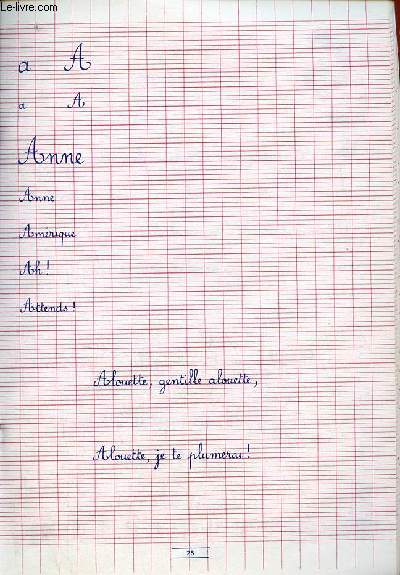 Le-livre.com
a A
a A
Anne
Anne
Amérique
Ah !
Attends !
Alouette, gentille alouette,
Alouette, je te plumerai !
25